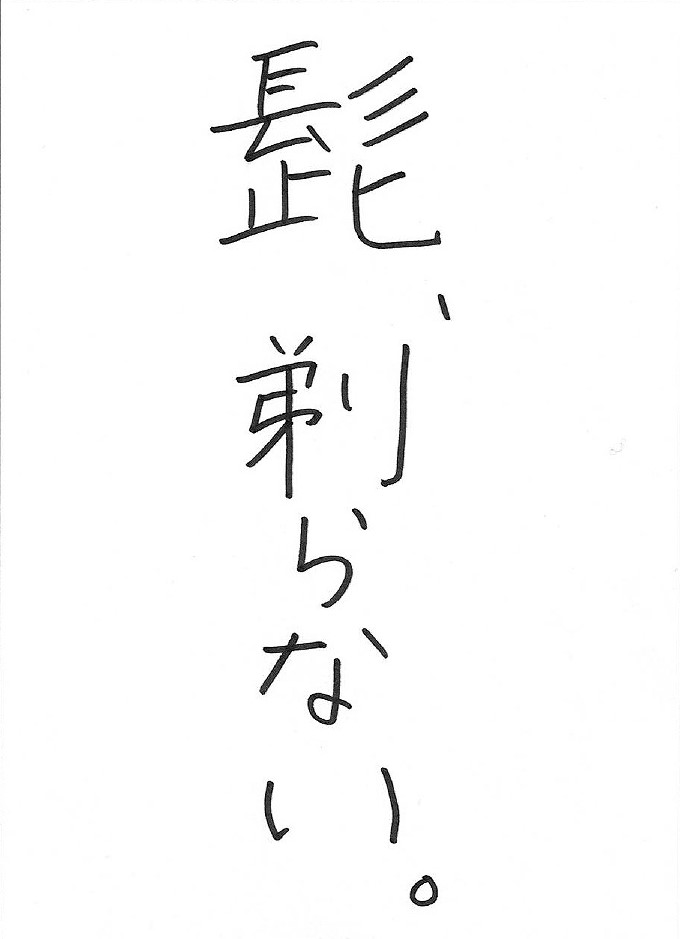 髭、剃らない。